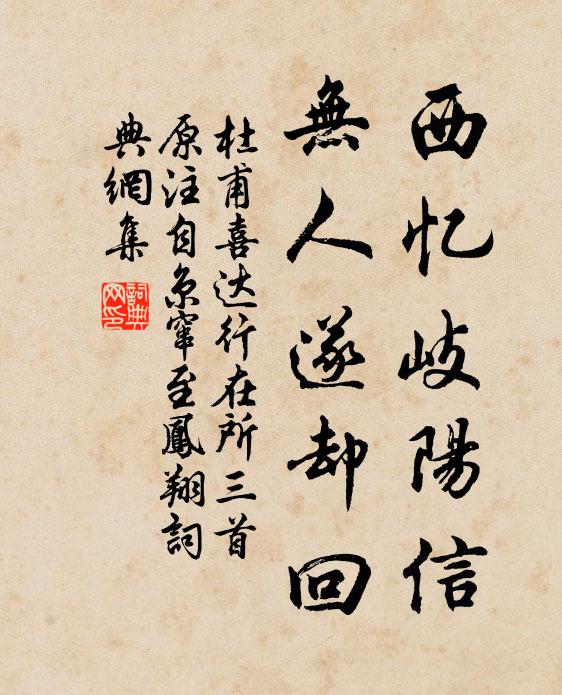 西忆岐陽信
無人遂却回
杜甫喜达行在所三首
原注自京窜至鳳翔詞
典網集
詞典网印